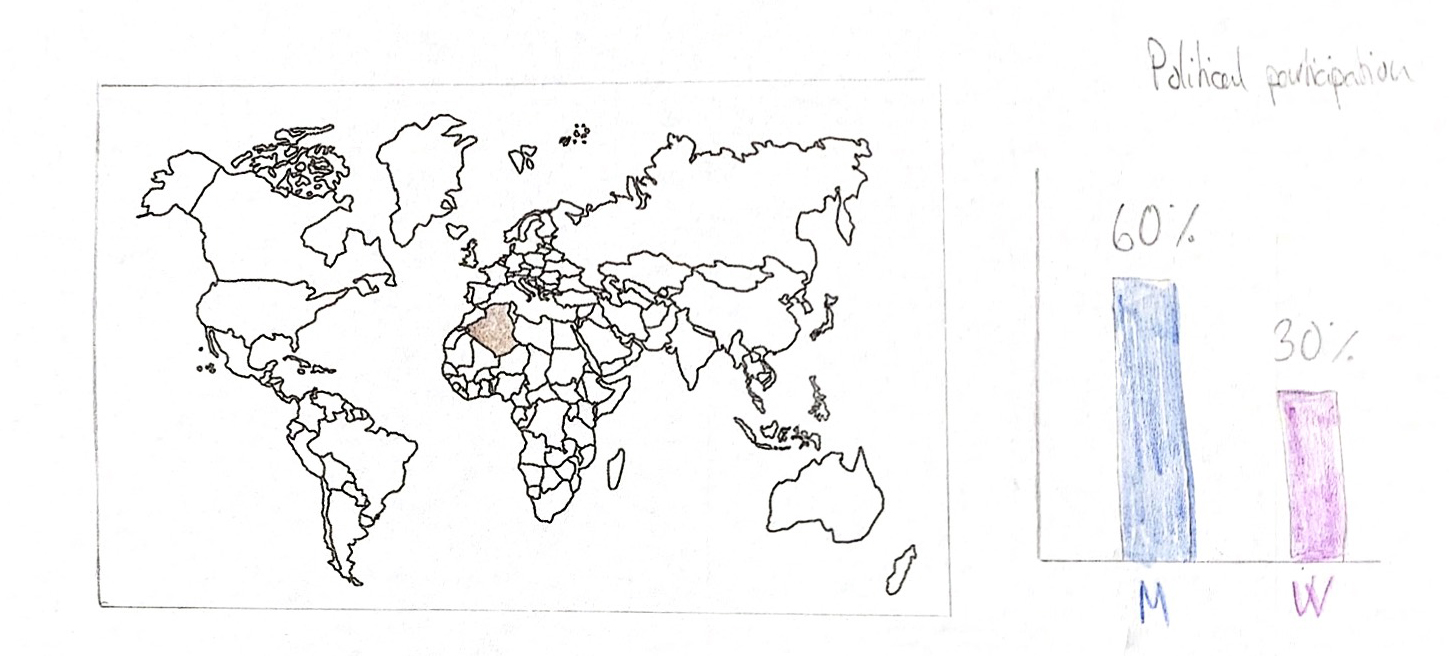 Political participation
60%
30%
M
W